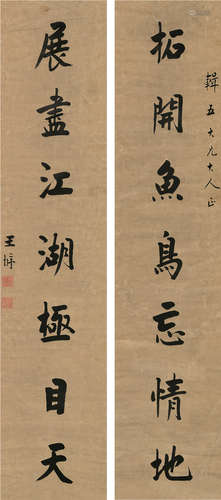 輯五大兄大人正
拓開魚鳥忘情地
展盡江湖極目天
王